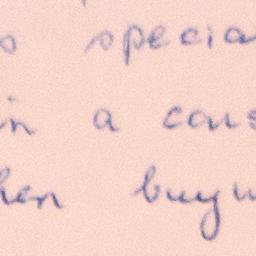 specia
in a caus
hen buyin